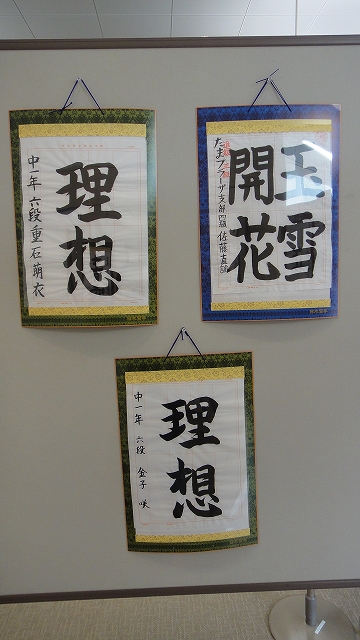 理想
中一年 六段 重石萌衣
玉雪
開花
たまプラーザ支部 四段 佐藤
理想
中一年 六段 金子 咲